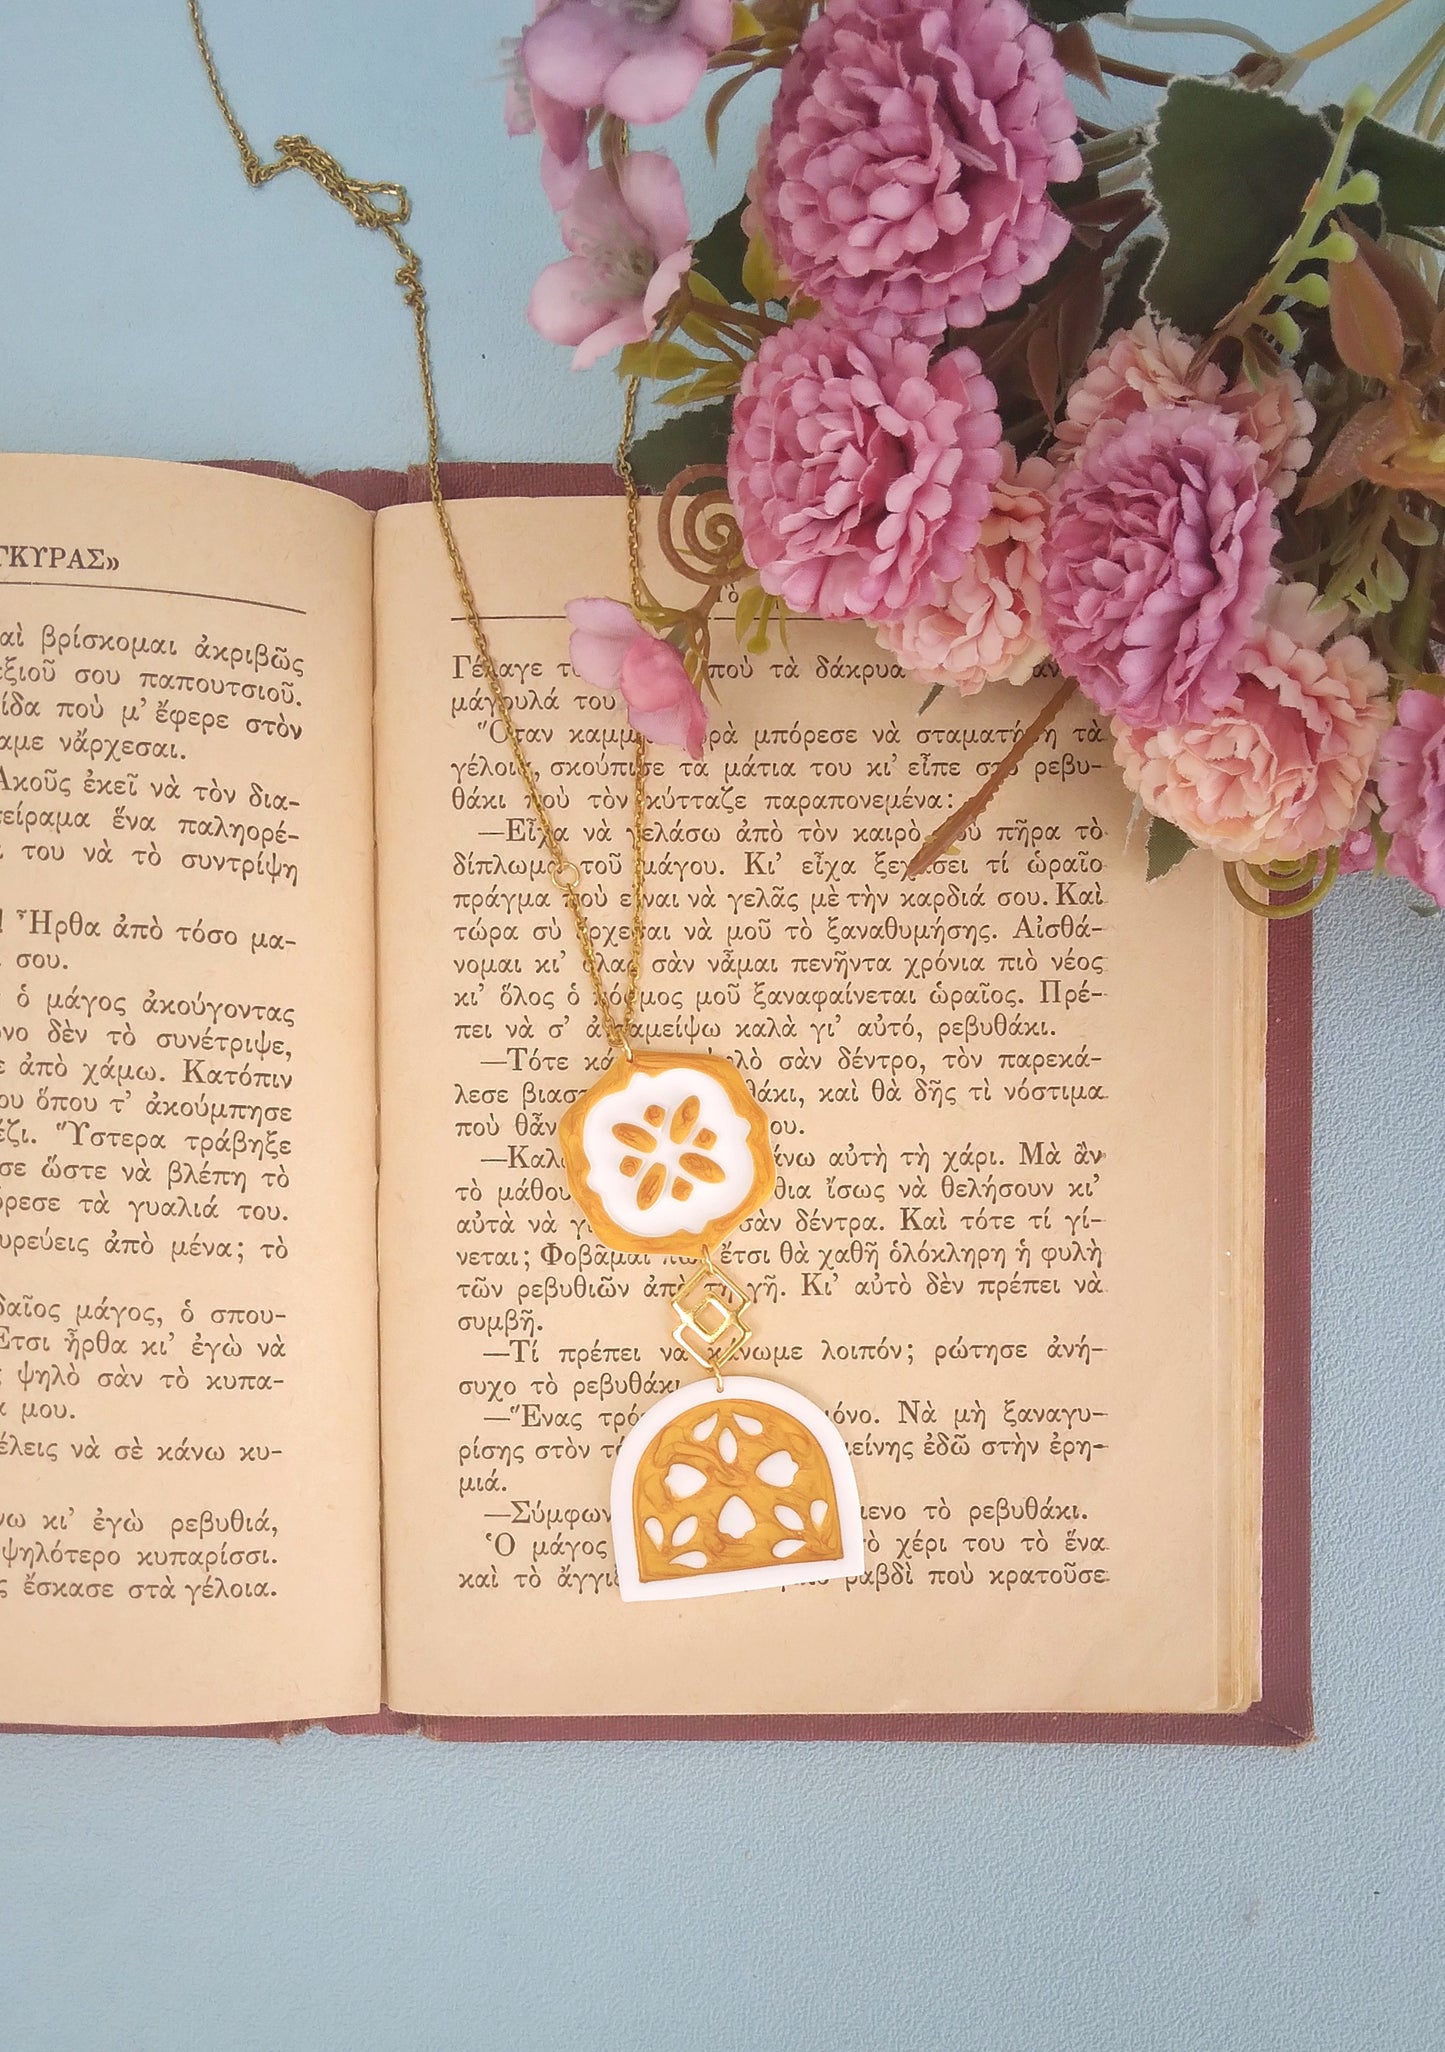 ΓΚΥΡΑΣ»
αὶ βρίσκομαι ἀκριβῶς
σου παπουτσιοῦ.
ποὺ μ' ἔφερε στὸν
νἄρχεσαι.
Ἀκοῦς ἐκεῖ νὰ τὸν δια-
ἕνα παληορέ-
του νὰ τὸ συντρίψῃ
Ἦρθα ἀπὸ τόσο μα-
σου.
ὁ μάγος ἀκούγοντας
δὲν τὸ συνέτριψε,
ἀπὸ χάμω. Κατόπιν
ὅπου τ' ἀκούμπησε
Ὕστερα τράβηξε
ὥστε νὰ βλέπῃ τὸ
τὰ γυαλιά του.
ἀπὸ μένα; τὸ
μάγος, ὁ σπου-
ἦρθα κι' ἐγὼ νὰ
ψηλὸ σὰν τὸ κυπα-
μου.
νὰ σὲ κάνω κυ-
κι' ἐγὼ ρεβυθιά,
ψηλότερο κυπαρίσσι.
ἔσκασε στὰ γέλοια.
Γέλαγε ποὺ τὰ δάκρυα
μάγουλά του
Ὅταν μπόρεσε νὰ σταματήσῃ τὰ
γέλοια, σκούπισε τὰ μάτια του κι' εἶπε στὸ ρεβυ-
θάκι ποὺ τὸν κύτταζε παραπονεμένα:
—Εἶχα νὰ γελάσω ἀπὸ τὸν καιρὸ ποὺ πῆρα τὸ
δίπλωμα τοῦ μάγου. Κι' εἶχα ξεχάσει τί ὡραῖο
πράγμα ποὺ εἶναι νὰ γελᾶς μὲ τὴν καρδιά σου. Καὶ
τώρα σὺ ἔρχεσαι νὰ μοῦ τὸ ξαναθυμήσῃς. Αἰσθά-
νομαι κι' ὅλας σὰν νἆμαι πενῆντα χρόνια πιὸ νέος
κι' ὅλος ὁ κόσμος μοῦ ξαναφαίνεται ὡραῖος. Πρέ-
πει νὰ σ' ἀνταμείψω καλὰ γι' αὐτό, ρεβυθάκι.
—Τότε σὰν δέντρο, τὸν παρεκά-
λεσε καὶ θὰ δῇς τὶ νόστιμα
ποὺ
αὐτὴ τὴ χάρι. Μὰ ἂν
τὸ ἴσως νὰ θελήσουν κι'
αὐτὰ νὰ σὰν δέντρα. Καὶ τότε τί γί-
νεται; Φοβᾶμαι πὼς ἔτσι θὰ χαθῇ ὁλόκληρη ἡ φυλὴ
τῶν ρεβυθιῶν ἀπὸ τὴ γῆ. Κι' αὐτὸ δὲν πρέπει νὰ
συμβῇ.
—Τί πρέπει νὰ κάνωμε λοιπόν; ρώτησε ἀνή-
συχο τὸ ρεβυθάκι.
—Ἕνας Νὰ μὴ ξαναγυ-
ρίσῃς στὸν ἐδῶ στὴν ἐρη-
μιά.
τὸ ρεβυθάκι.
Ὁ μάγος χέρι του τὸ ἕνα
καὶ τὸ ραβδὶ ποὺ κρατοῦσε